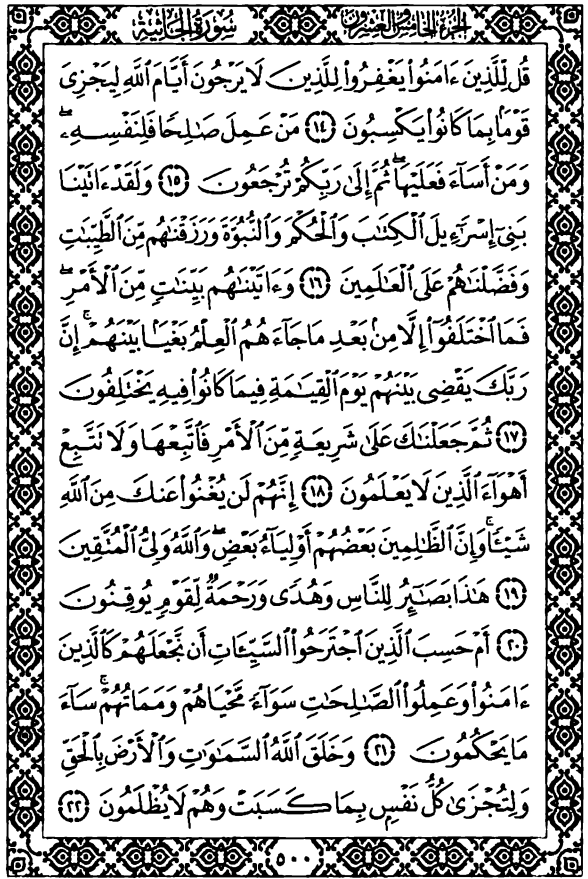 سُورَةُ الجَاثِيَةِ الجُزْءُ الخَامِسُ وَالعِشْرُونَ
قُل لِّلَّذِينَ ءَامَنُوا۟ يَغْفِرُوا۟ لِلَّذِينَ لَا يَرْجُونَ أَيَّامَ ٱللَّهِ لِيَجْزِىَ
قَوْمًۢا بِمَا كَانُوا۟ يَكْسِبُونَ ١٤ مَنْ عَمِلَ صَـٰلِحًا فَلِنَفْسِهِۦ ۖ
وَمَنْ أَسَآءَ فَعَلَيْهَا ۖ ثُمَّ إِلَىٰ رَبِّكُمْ تُرْجَعُونَ ١٥ وَلَقَدْ ءَاتَيْنَا
بَنِىٓ إِسْرَٰٓءِيلَ ٱلْكِتَـٰبَ وَٱلْحُكْمَ وَٱلنُّبُوَّةَ وَرَزَقْنَـٰهُم مِّنَ ٱلطَّيِّبَـٰتِ
وَفَضَّلْنَـٰهُمْ عَلَى ٱلْعَـٰلَمِينَ ١٦ وَءَاتَيْنَـٰهُم بَيِّنَـٰتٍ مِّنَ ٱلْأَمْرِ ۖ
فَمَا ٱخْتَلَفُوٓا۟ إِلَّا مِنۢ بَعْدِ مَا جَآءَهُمُ ٱلْعِلْمُ بَغْيًۢا بَيْنَهُمْ ۚ إِنَّ
رَبَّكَ يَقْضِى بَيْنَهُمْ يَوْمَ ٱلْقِيَـٰمَةِ فِيمَا كَانُوا۟ فِيهِ يَخْتَلِفُونَ
١٧ ثُمَّ جَعَلْنَـٰكَ عَلَىٰ شَرِيعَةٍ مِّنَ ٱلْأَمْرِ فَٱتَّبِعْهَا وَلَا تَتَّبِعْ
أَهْوَآءَ ٱلَّذِينَ لَا يَعْلَمُونَ ١٨ إِنَّهُمْ لَن يُغْنُوا۟ عَنكَ مِنَ ٱللَّهِ
شَيْـًٔا ۚ وَإِنَّ ٱلظَّـٰلِمِينَ بَعْضُهُمْ أَوْلِيَآءُ بَعْضٍ ۖ وَٱللَّهُ وَلِىُّ ٱلْمُتَّقِينَ
١٩ هَـٰذَا بَصَـٰٓئِرُ لِلنَّاسِ وَهُدًى وَرَحْمَةٌ لِّقَوْمٍ يُوقِنُونَ
٢٠ أَمْ حَسِبَ ٱلَّذِينَ ٱجْتَرَحُوا۟ ٱلسَّيِّـَٔاتِ أَن نَّجْعَلَهُمْ كَٱلَّذِينَ
ءَامَنُوا۟ وَعَمِلُوا۟ ٱلصَّـٰلِحَـٰتِ سَوَآءً مَّحْيَاهُمْ وَمَمَاتُهُمْ ۚ سَآءَ
مَا يَحْكُمُونَ ٢١ وَخَلَقَ ٱللَّهُ ٱلسَّمَـٰوَٰتِ وَٱلْأَرْضَ بِٱلْحَقِّ
وَلِتُجْزَىٰ كُلُّ نَفْسٍۭ بِمَا كَسَبَتْ وَهُمْ لَا يُظْلَمُونَ ٢٢
٥٠٠